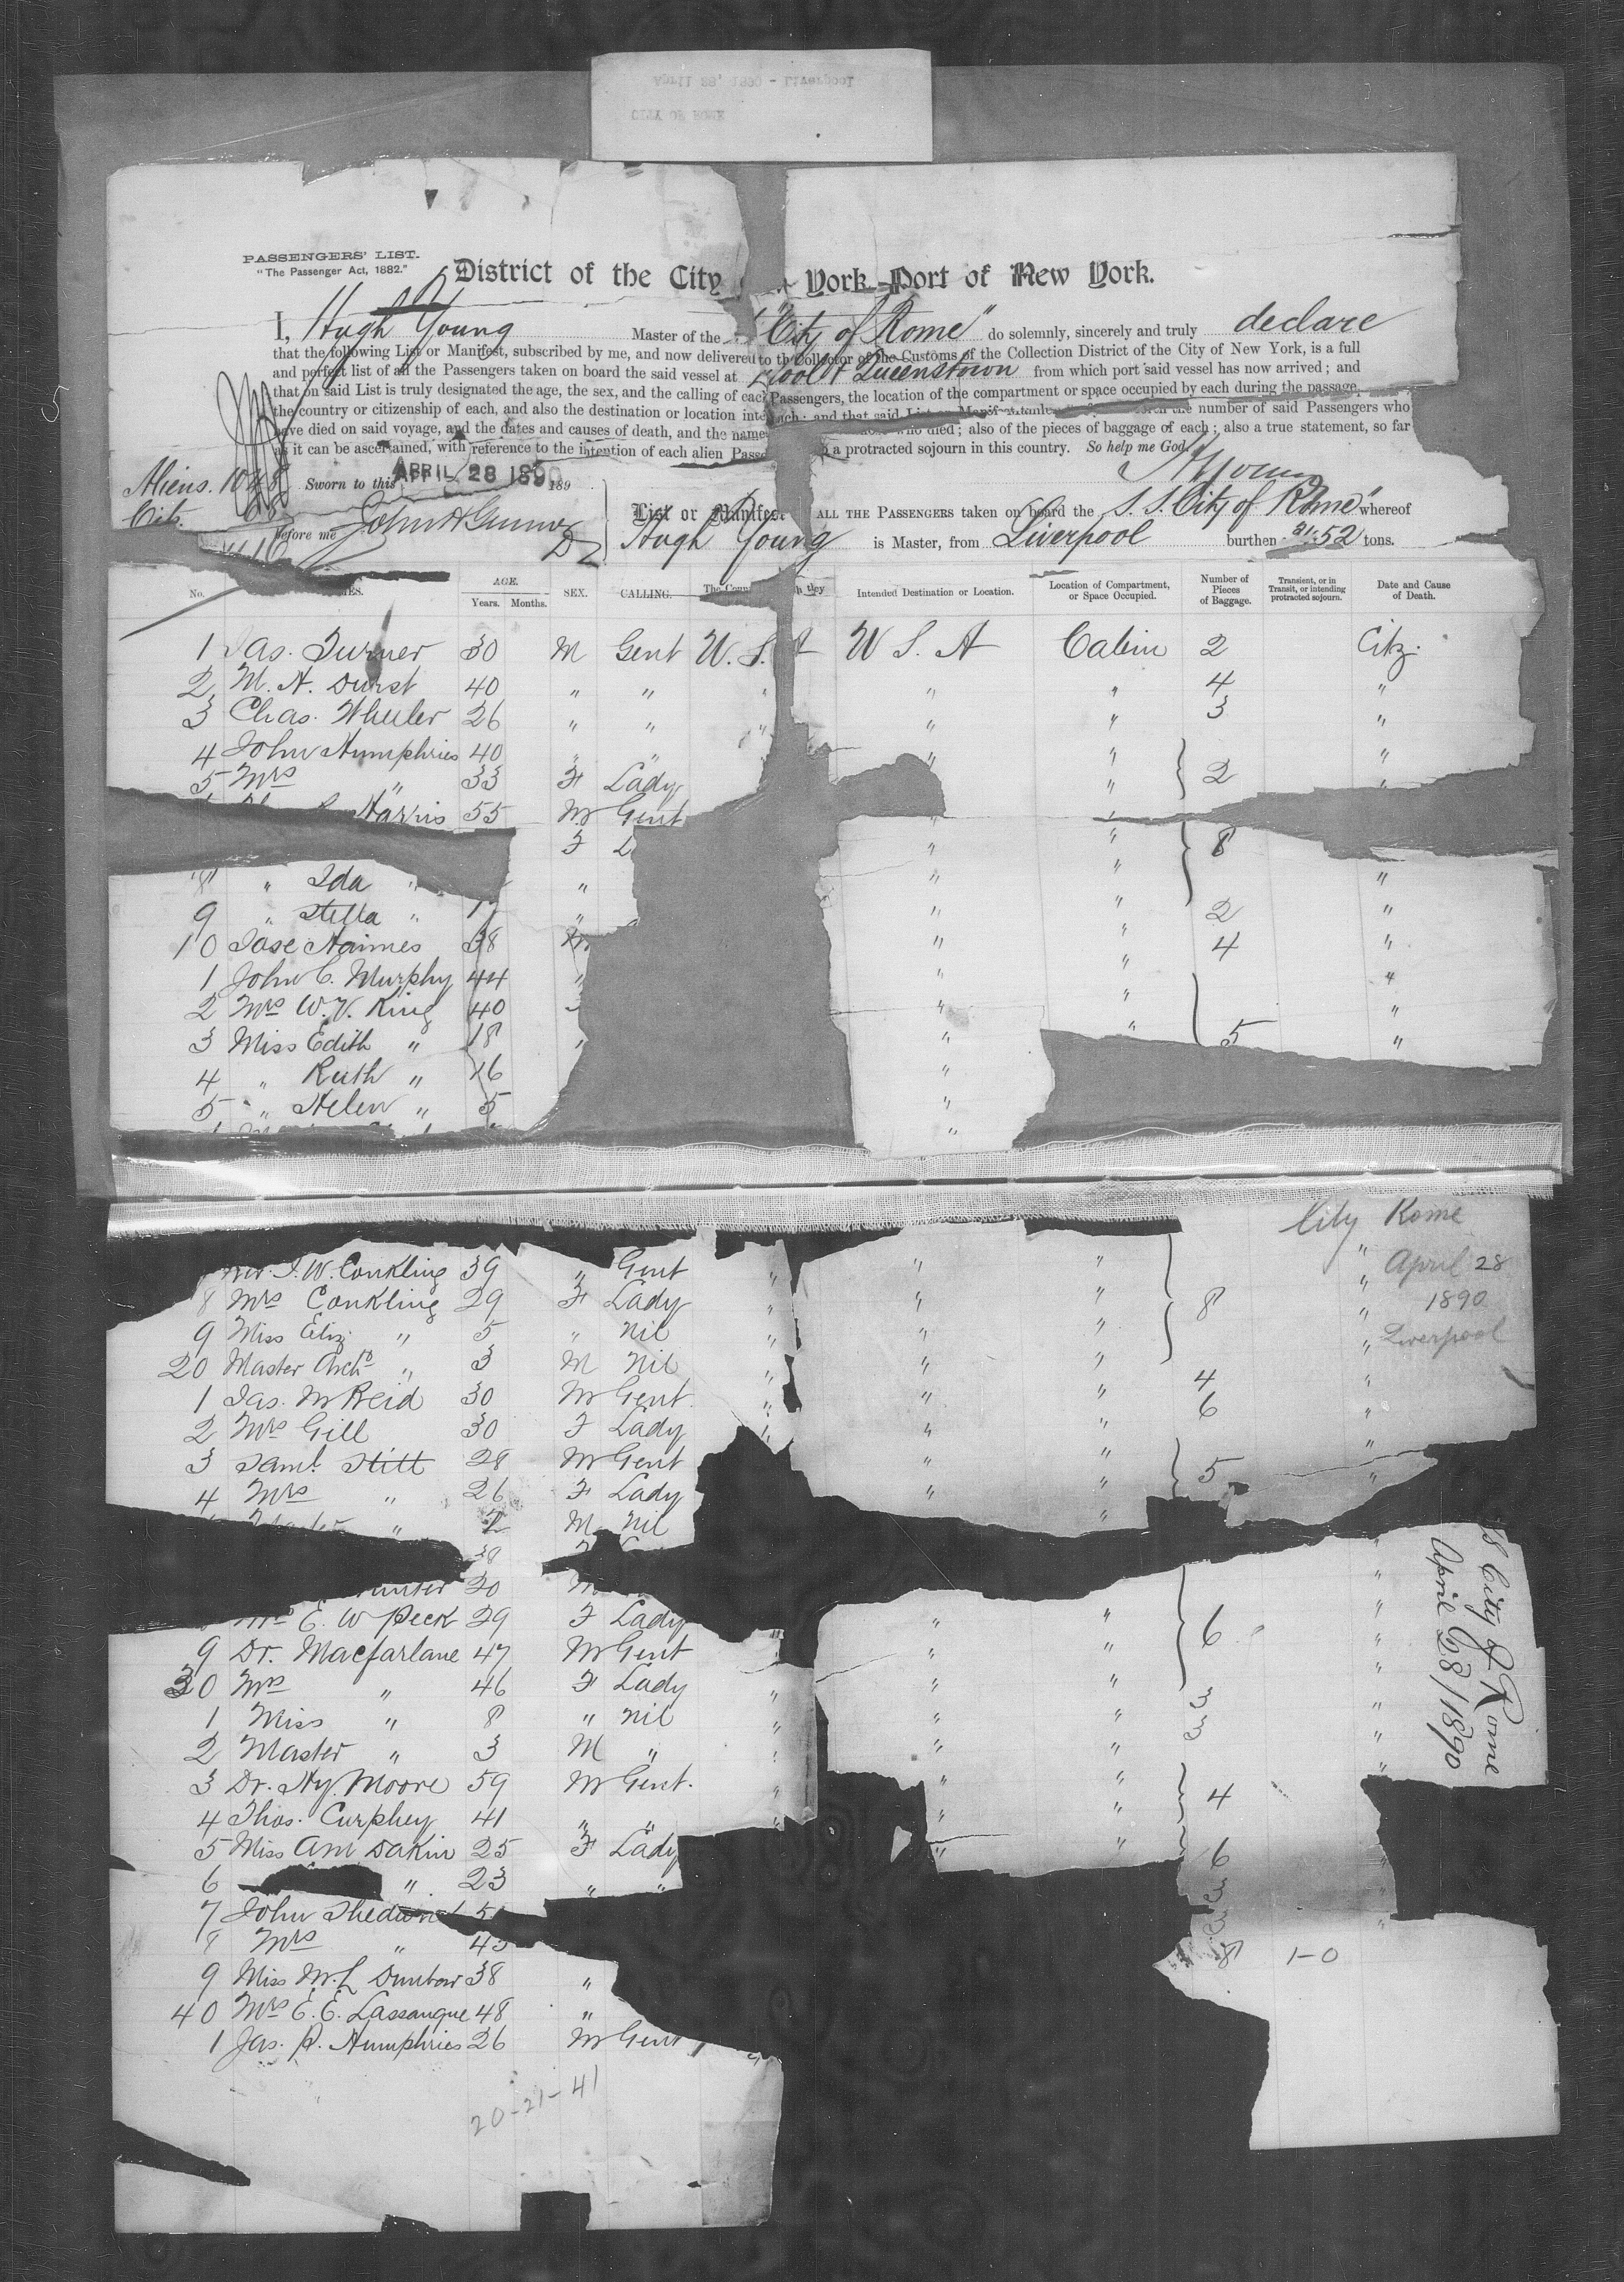 April 28, 1890 - Liverpool
CITY OF ROME
PASSENGERS' LIST.
"The Passenger Act, 1882."
District of the City York—Port of New York.
I, Hugh Young Master of the "City of Rome" do solemnly, sincerely and truly declare
that the following List or Manifest, subscribed by me, and now delivered to the Collector of the Customs of the Collection District of the City of New York, is a full
and perfect list of all the Passengers taken on board the said vessel at L'pool & Queenstown from which port said vessel has now arrived; and
that on said List is truly designated the age, the sex, and the calling of each Passengers, the location of the compartment or space occupied by each during the passage,
the country or citizenship of each, and also the destination or location each; and that said List or Manifest the number of said Passengers who
have died on said voyage, and the dates and causes of death, and the names who died; also of the pieces of baggage of each; also a true statement, so far
as it can be ascertained, with reference to the intention of each alien a protracted sojourn in this country. So help me God.
H Young
Aliens. 1048 Sworn to this APRIL 28 1890 189
Cits. 68
List or Manifest ALL THE PASSENGERS taken on board the S. S. "City of Rome" whereof
before me John H Gunner
Hugh Young is Master, from Liverpool burthen 3152 tons.
No. AGE. Years. Months. SEX. CALLING. Intended Destination or Location. Location of Compartment, or Space Occupied. Number of Pieces of Baggage. Transient, or in Transit, or intending protracted sojourn. Date and Cause of Death.
1 Jas. Turner 30 M Gent U. S. A U S. A Cabin 2 Citz.
2 M. A. Durst 40 " " " " " 4 "
3 Chas. Wheeler 26 " " " " " 3 "
4 John Humphries 40 " " " " "
5 Mrs " 33 F Lady " 2 "
Harris 55 M Gent "
F " " 8
8 " Ida " " " " "
9 " Stella " 1 " " " 2 "
10 Jose Haimes 38 M " " 4 "
1 John C. Murphy 44 " " " "
2 Mrs W. V. King 40 " " "
3 Miss Edith " 18 " " " 5 "
4 " Ruth " 16 "
5 " Helen " 5 "
"
City Rome
Rev. J. W. Conkling 39 " Gent " " " " April 28
8 Mrs Conkling 29 F Lady " " " 8 " 1890
9 Miss Eliz. " 5 " Nil " " " " Liverpool
20 Master Archd " 3 M Nil " " "
1 Jas. M Reid 30 M Gent. " " " 4 "
2 Mrs Gill 30 F Lady " " " 6 "
3 Saml. Stitt 28 M Gent " " "
4 Mrs " 26 F Lady " " 5 "
Master " 2 M Nil "
20 M "
Mrs E. W Peck 29 F Lady " " "
9 Dr. Macfarlane 47 M Gent " " " 6 "
30 Mrs " 46 F Lady " " " "
1 Miss " 8 " Nil " " " 3 "
2 Master " 3 M " " " " 3 "
3 Dr. Hy. Moore 59 M Gent. " " " "
4 Thos. Curphey 41 " " " " " 4
5 Miss Am Dakin 25 F Lady " " 6
6 " 23 " "
7 John
8 Mrs " 45
9 Miss M. L Dunbar 38 " 8 1-0
40 Mrs E. E. Lassangue 48 "
1 Jas. P. Humphries 26 M Gent "
20-21-41
SS City of Rome
April 28/1890